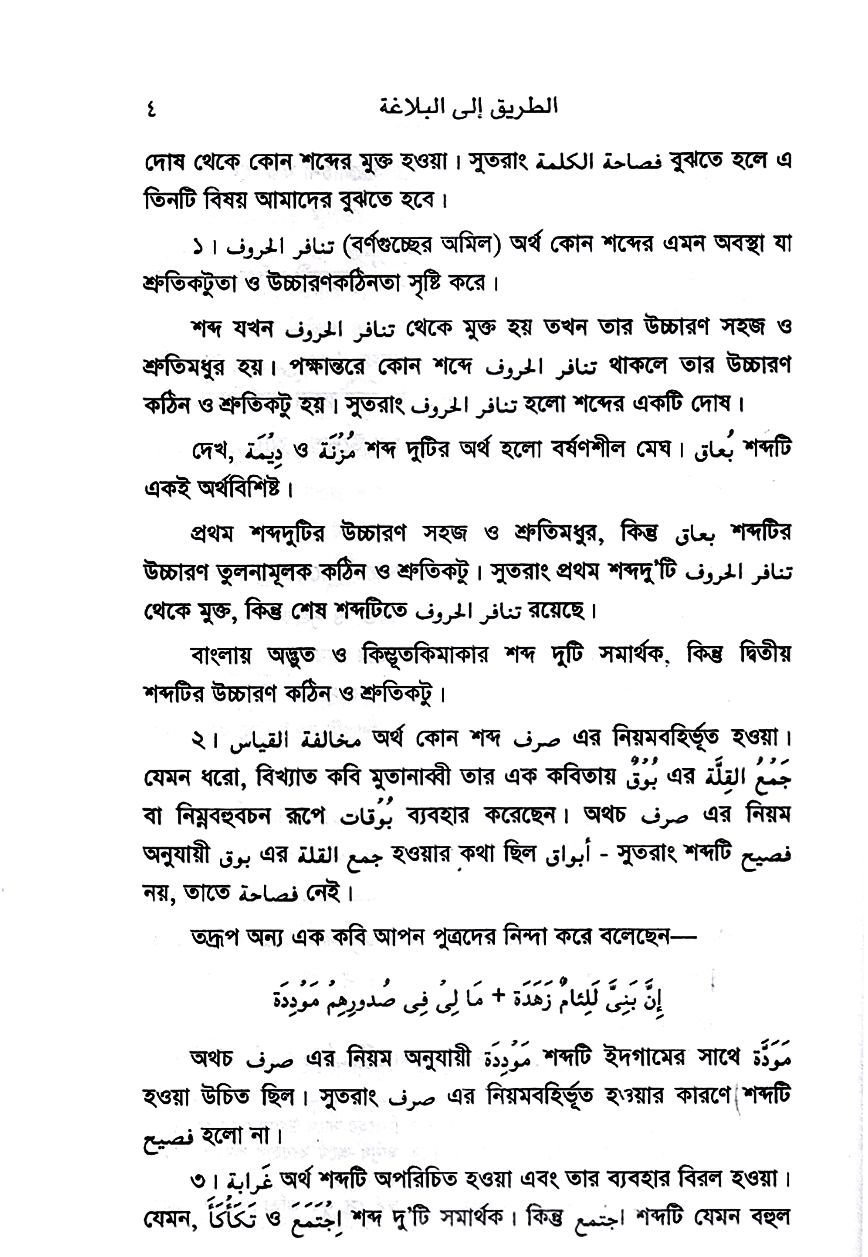 الطريق إلى البلاغة ٤
দোষ থেকে কোন শব্দের মুক্ত হওয়া। সুতরাং فصاحة الكلمة বুঝতে হলে এ
তিনটি বিষয় আমাদের বুঝতে হবে।
১। تنافر الحروف (বর্ণগুচ্ছের অমিল) অর্থ কোন শব্দের এমন অবস্থা যা
শ্রুতিকটুতা ও উচ্চারণকঠিনতা সৃষ্টি করে।
শব্দ যখন تنافر الحروف থেকে মুক্ত হয় তখন তার উচ্চারণ সহজ ও
শ্রুতিমধুর হয়। পক্ষান্তরে কোন শব্দে تنافر الحروف থাকলে তার উচ্চারণ
কঠিন ও শ্রুতিকটু হয়। সুতরাং تنافر الحروف হলো শব্দের একটি দোষ।
দেখ, دِيْمَة ও مُزْنَة শব্দ দুটির অর্থ হলো বর্ষণশীল মেঘ। بُعاق শব্দটি
একই অর্থবিশিষ্ট।
প্রথম শব্দদুটির উচ্চারণ সহজ ও শ্রুতিমধুর, কিন্তু بعاق শব্দটির
উচ্চারণ তুলনামূলক কঠিন ও শ্রুতিকটু। সুতরাং প্রথম শব্দদু'টি تنافر الحروف
থেকে মুক্ত, কিন্তু শেষ শব্দটিতে تنافر الحروف রয়েছে।
বাংলায় অদ্ভুত ও কিম্ভূতকিমাকার শব্দ দুটি সমার্থক, কিন্তু দ্বিতীয়
শব্দটির উচ্চারণ কঠিন ও শ্রুতিকটু।
২। مخالفة القياس অর্থ কোন শব্দ صرف এর নিয়মবহির্ভূত হওয়া।
যেমন ধরো, বিখ্যাত কবি মুতানাব্বী তার এক কবিতায় بُوْقٌ এর جَمْعُ القِلَّة
বা নিম্নবহুবচন রূপে بُوْقات ব্যবহার করেছেন। অথচ صرف এর নিয়ম
অনুযায়ী بوق এর جمع القلة হওয়ার কথা ছিল أبواق - সুতরাং শব্দটি فصيح
নয়, তাতে فصاحة নেই।
তদ্রূপ অন্য এক কবি আপন পুত্রদের নিন্দা করে বলেছেন—
إِنَّ بَنِىَّ لَلِئامٌ زَهَدَة + مَا لِىْ فِى صُدورِهِمْ مَوْدِدَة
অথচ صرف এর নিয়ম অনুযায়ী مَوْدِدَة শব্দটি ইদগামের সাথে مَوَدَّة
হওয়া উচিত ছিল। সুতরাং صرف এর নিয়মবহির্ভূত হওয়ার কারণে শব্দটি
فصيح হলো না।
৩। غَرابة অর্থ শব্দটি অপরিচিত হওয়া এবং তার ব্যবহার বিরল হওয়া।
যেমন, تَكَأْكَأَ ও اِجْتَمَعَ শব্দ দু'টি সমার্থক। কিন্তু اجتمع শব্দটি যেমন বহুল